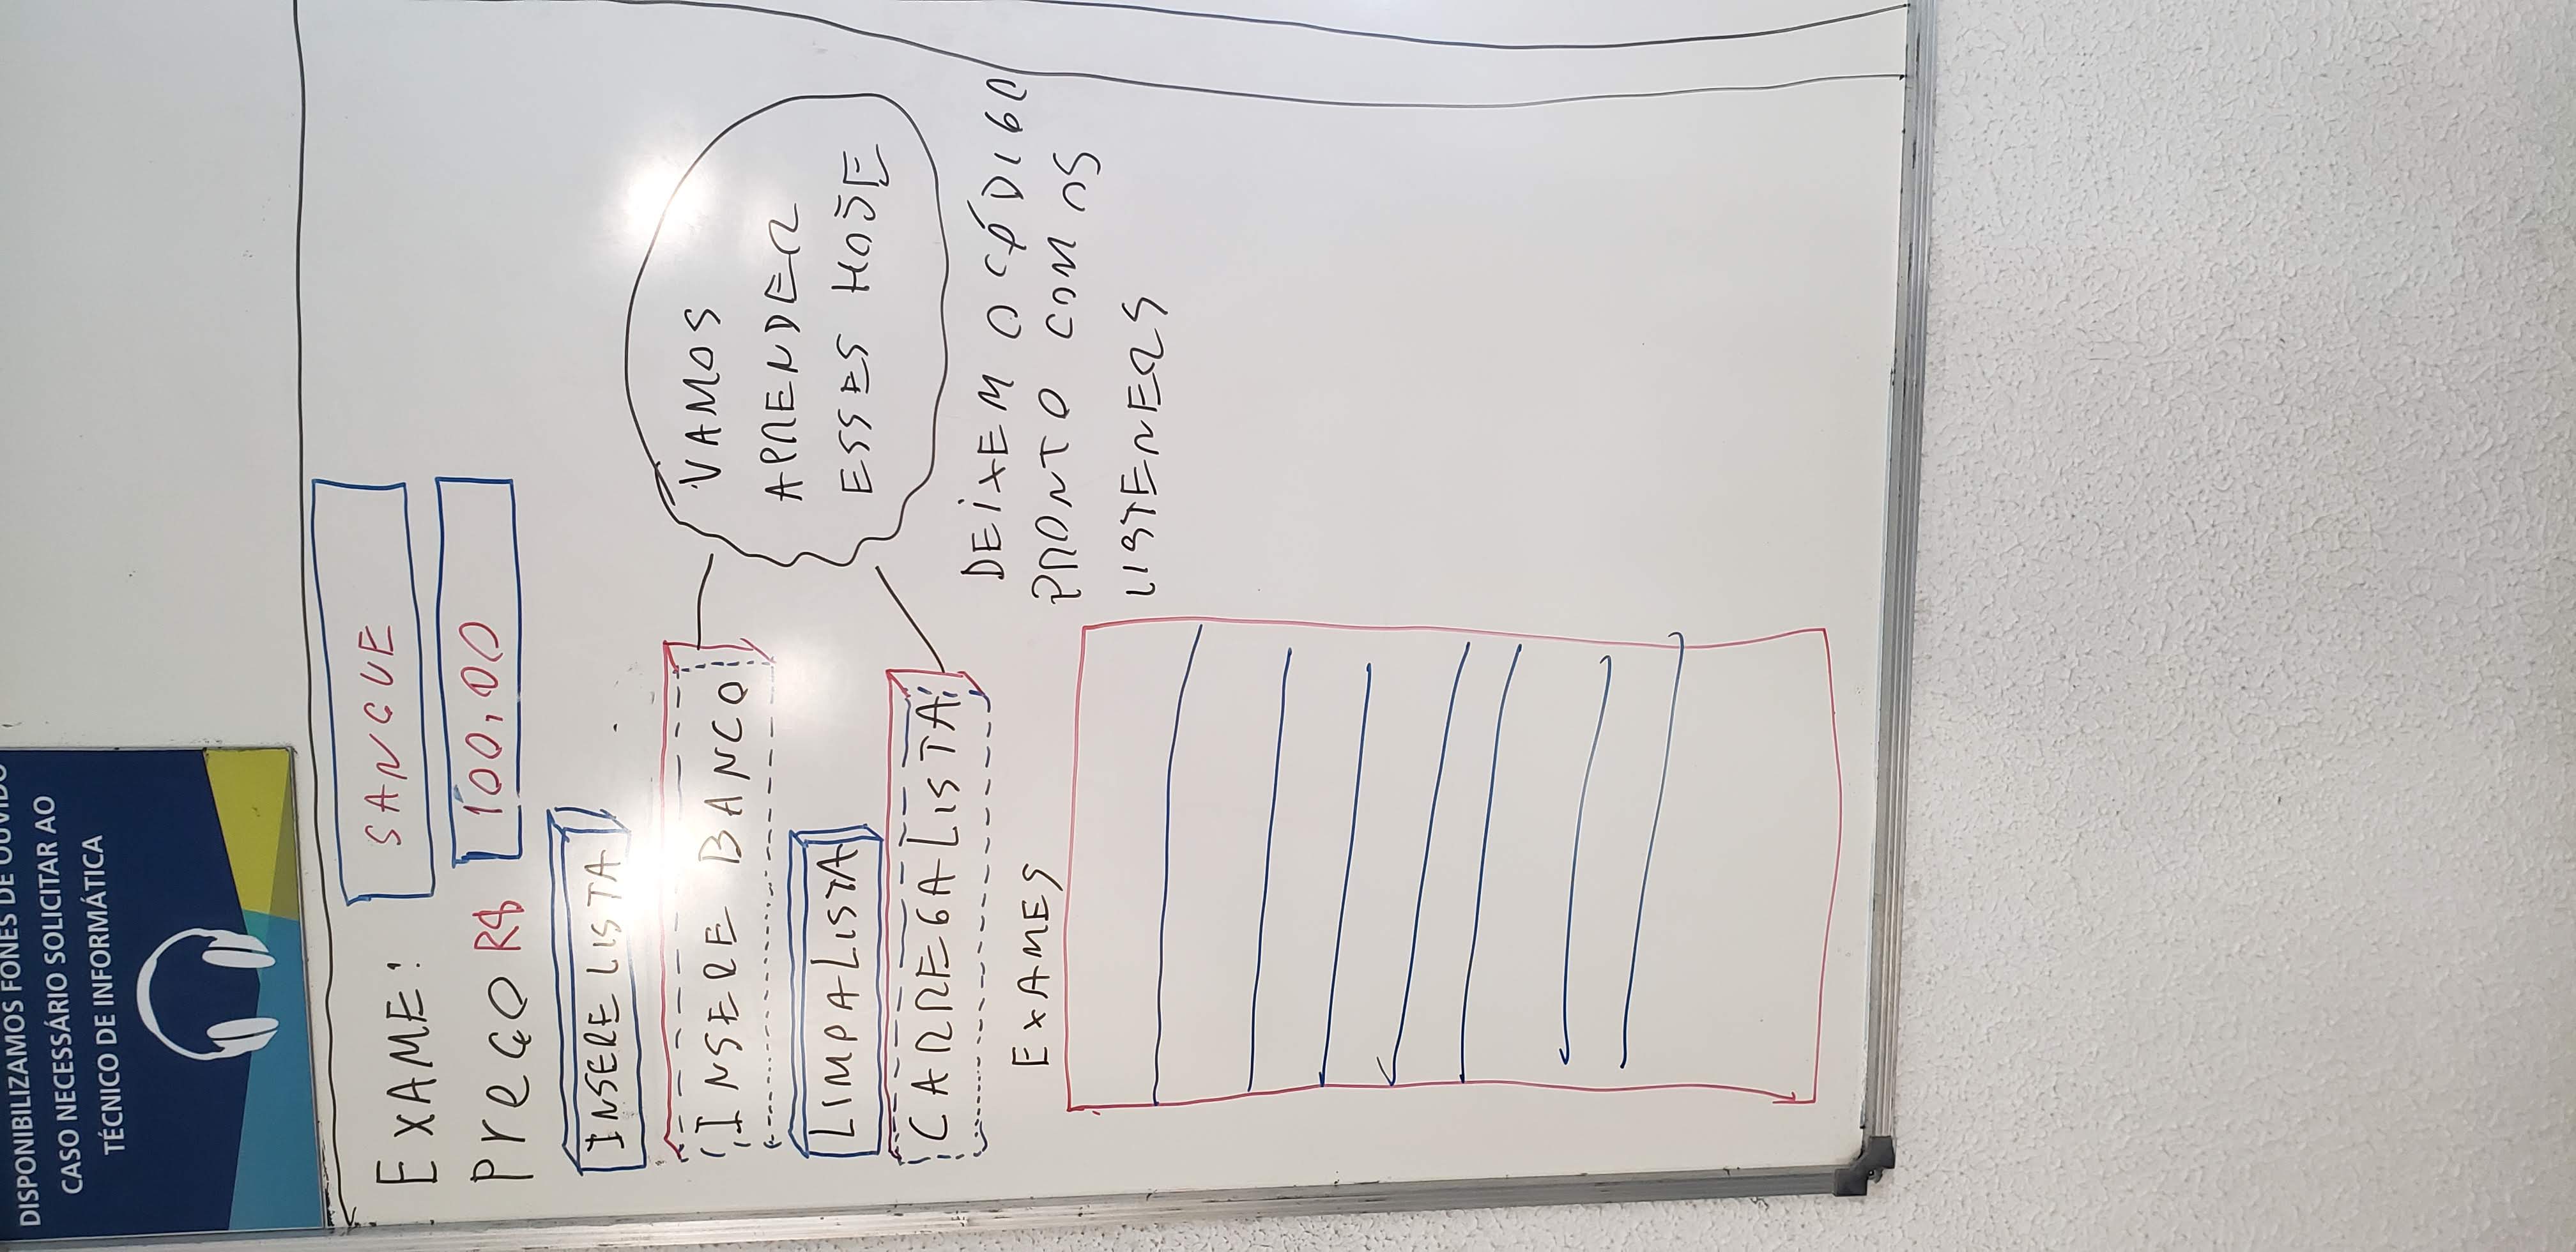 DISPONIBILIZAMOS FONES DE OUVIDO
CASO NECESSÁRIO SOLICITAR AO
TÉCNICO DE INFORMÁTICA
EXAME: SANGUE
PREÇO R$ 100,00
INSERE LISTA
INSERE BANCO
LIMPA LISTA
CARREGA LISTA
VAMOS
APRENDER
ESSES HOJE
DEIXEM O CÓDIGO
PRONTO COM OS
LISTENERS
EXAMES